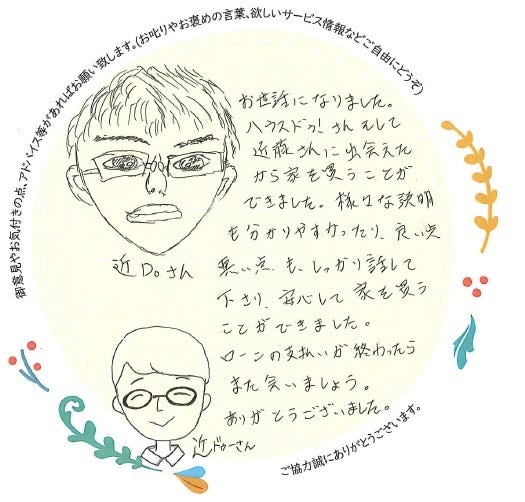 御意見やお気付きの点、アドバイス等があればお願い致します。(お叱りやお褒めの言葉、欲しいサービス情報などご自由にどうぞ)
お世話になりました。
ハウスドゥ!さんそして
近藤さんに出会えた
から家を買うことが
できました。様々な説明
も分かりやすかったり、良い点
悪い点も、しっかり話して
下さり、安心して家を買う
ことができました。
ローンの支払いが終わったら
また会いましょう。
ありがとうございました。
近Doさん
近ドゥーさん
ご協力誠にありがとうございます。